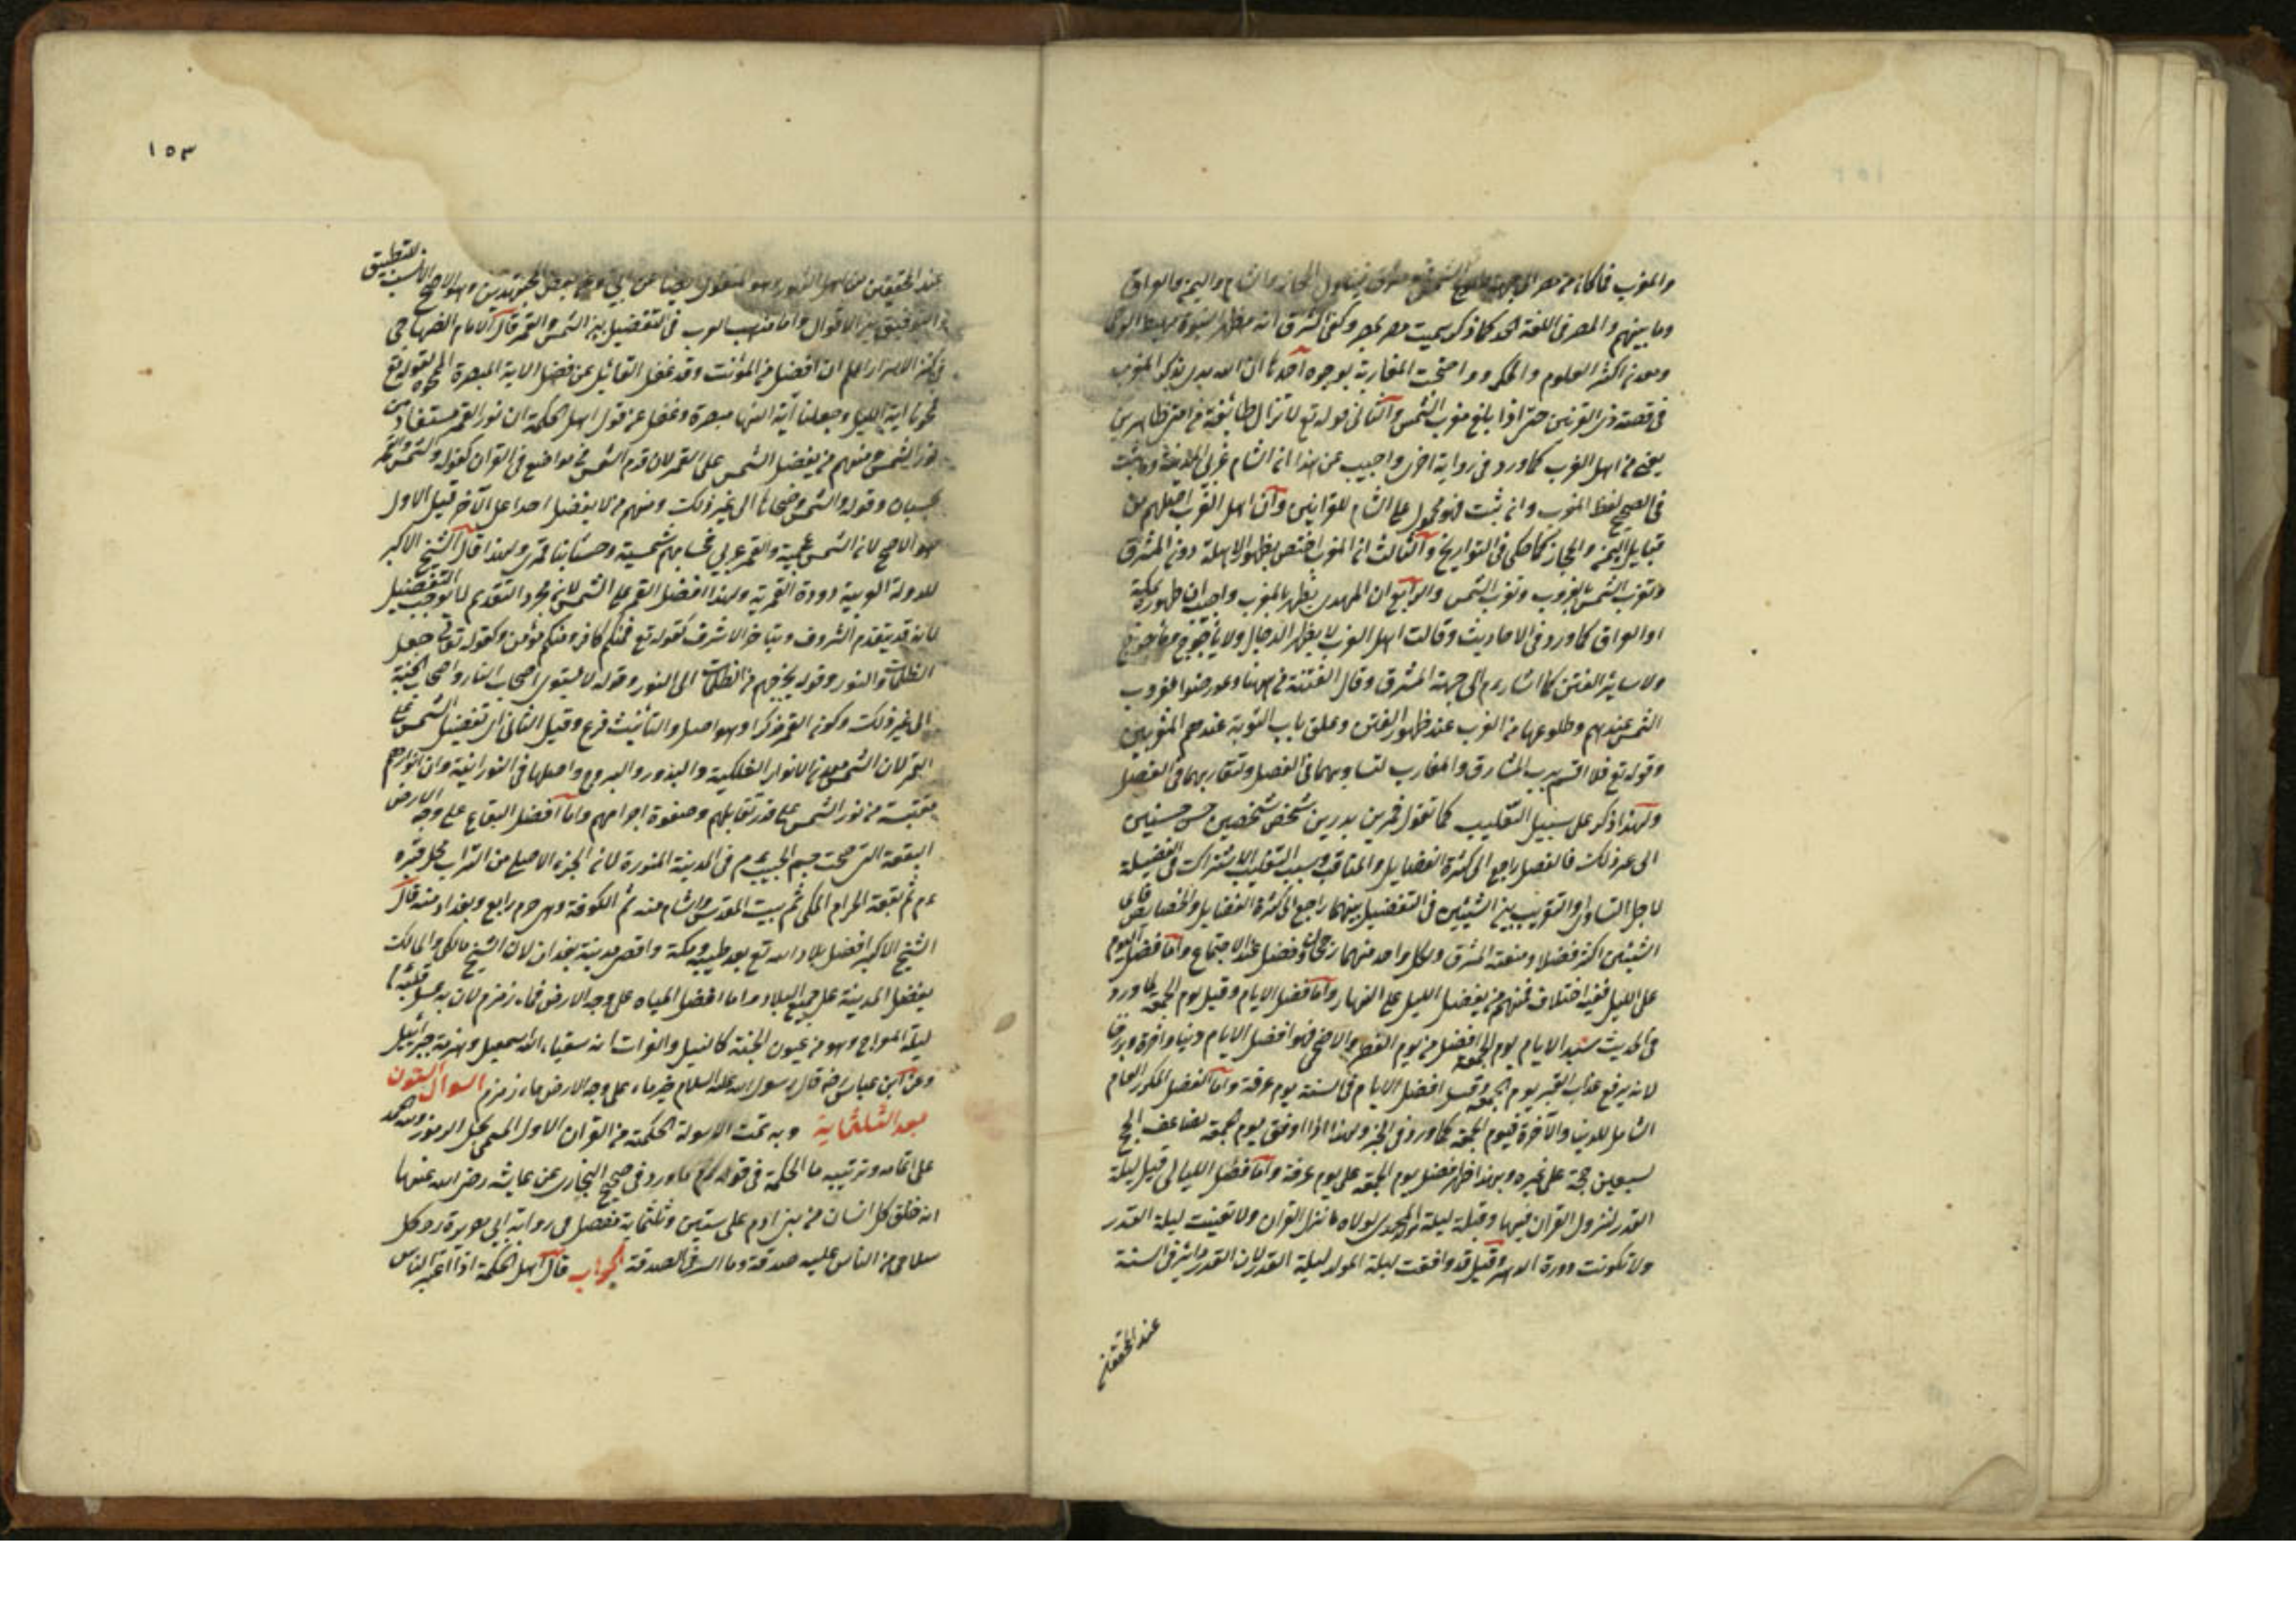 والمغرب فما كان من مصر الى جهة طلوع الشمس شرق فيتناول الحجاز والشام واليمن والعراق
وما بينهم والمصر فى اللغة الحد كما ذكر سميت مصر بمصر وكفى الشرق انه مظهر النبوة ومهبط الوحى
ومعدن اكثر العلوم والحكم واحتجت المغاربة بوجوه احدها ان الله بدى بذكر المغرب
فى قصة ذى القرنين حتى اذا بلغ مغرب الشمس والثانى قوله تع لا تزال طائفة من امتى ظاهرين
يعنى من اهل الغرب كما ورد فى رواية اخرى واجيب عن هذا انه الشام غربى المدينة وما ثبت
فى الصحيح لفظ المغرب وان ثبت فهو محمول على الشام للقراينين وان اهل الغرب اصلهم من
قبايل اليمن والحجاز كما حكى فى التواريخ والثالث ان المغرب اختص بظهور الاهلة دون المشرق
وتعرب الشمس الغروب وتغرب الشمس والرابع ان المهدى يظهر بالمغرب واجيب ان ظهوره بمكة
او العراق كما ورد فى الاحاديث وقالت اهل الغرب لا يظهر الدجال ولا ياجوج وماجوج
ولا ساير الفتن كما اشار ءم الى جهة المشرق وقال الفتنة من ههنا وعورضوا بغروب
الشمس عندهم وطلوعها من الغرب عند ظهور الفتن وغلق باب التوبة عندهم المغربين
وقوله تع فلا اقسم برب المشارق والمغارب لتساويهما فى الفصل ولتقاربهما فى الفضل
ولهذا ذكر على سبيل التغليب كما تقول قمرين بدرين شخص شخصين حسن حسنين
الى غير ذلك فالفصل راجع الى كثرة الفضايل والمناقب وسبب التغليب الاشتراك فى الفضيلة
لاجل التساوى والتقريب بين الشيئين فى التفضيل بينهما راجع الى كثرة الفضايل والخصايص فاى
الشيئين اكثر فضلا ومنعة المشرق ولكل واحد منهما رجحان وفضل عند الاجتماع واما فضل اليوم
على الليل ففيه اختلاف فمنهم من يفضل الليل على النهار واما افضل الايام وقيل يوم الجمعة لما ورد
فى الحديث سيد الايام يوم الجمعة افضل من يوم الفطر والاضحى فهو افضل الايام دنيا واخرة
لانه يرفع عذاب القبر يوم الجمعة وقيل افضل الايام فى السنة يوم عرفة واما الفضل المكرر العام
الشامل للدنيا والآخرة فيوم الجمعة كما ورد فى الخبر ولهذا اذا وافق يوم جمعة يضاعف الحج
لسبعين حجة على غيره وبهذا ظهر فضل يوم الجمعة على يوم عرفة واما افضل الليالى قيل ليلة
القدر لنزول القرآن فيها وقيل ليلة المولد المحمدى لولاه ما نزل القران ولا تعينت ليلة القدر
ولا تكونت دورة الدهر وقيل قد وافقت ليلة المولد ليلة القدر لان القدر دائر فى السنة
عند المحققين
١٥٣
عند المحققين من اهل النور وهو المنقول ايضا عن ابى وعن بعض المجتهدين وهو الاصح الانسب للتطبيق
والتوفيق بين الاقوال واما مذهب العرب فى التفضيل بين الشمس والقمر قال الامام الصنهاجى
فى كنز الاسرار اعلم ان افضل من المؤنث وقد غفل القائل عن فضل الاية المبصرة المحوة لقوله تع
فمحونا اية الليل وجعلنا آية النهار مبصرة وغفل عن قول اهل الحكمة ان نور القمر مستفاد من
نور الشمس ومنهم من يفضل الشمس على القمر لان قدم الشمس فى مواضع فى القران كقوله والشمس والقمر
بحسبان وقوله والشمس وضحاها الى غير ذلك ومنهم من لا يفضل احدا على الآخر قيل الاول
هو الاصح لانه الشمس عجمية والقمر عربى فحسابهم شمسية وحسابنا قمرى ولهذا قال الشيخ الاكبر
للدولة العربية دورة القمرية ولهذا افضل القمر على الشمس لان مجرد التقديم لا توجب التفضيل
لانه قد يتقدم المشروف ويتاخر الاشرف كقوله تع فمنكم كافر ومنكم مؤمن وكقوله تعالى جعل
الظلمات والنور وقوله يخرجهم من الظلمات الى النور وقوله لا يستوى اصحاب النار واصحاب الجنة
الى غير ذلك وكونه القمر مذكرا وهو اصل والتانيث فرع وقيل الثانى اى تفضيل الشمس على
القمر لان الشمس معدن الانوار الفلكية والبدور والبروج واصلها فى النورانية وان انوارهم
مقتبسة من نور الشمس على قدر تقابلهم وصفوة اجرامهم واما افضل البقاع على وجه الارض
البقعة التى ضمت جسم الحبيب ءم فى المدينة المنورة لانه الجزء الاصلى من التراب محل قبره
ءم ثم بقعة الحرام المكى ثم بيت المقدس والشام منه ثم الكوفة وهى حرم رابع وبغداد منه قال
الشيخ الاكبر افضل بلاد الله تع بعد طيبة ومكة واقصى مدينة بغدان لان الشيخ مالكى والمالك
يفضل المدينة على جميع البلاد واما افضل المياه على وجه الارض فماء زمزم لان به غسل قلبه ءم
ليلة المعراج وهو من عيون الجنة كالنيل والفرات انه سقياء الله اسمعيل وهزمة جبرائيل
وعن ابن عباس رضه قال رسول الله عليه السلام خير ماء على وجه الارض ماء زمزم السوال الستون
بعد الثلثماية وبه تمت الاسولة الحكمة من القران الاول المسمى بحل الرموز ولله الحمد
على اتمامه وترتيبه ما الحكمة فى قوله ءم ما ورد فى صحيح البخارى عن عايشة رضى الله عنها
انه خلق كل انسان من بنى ادم على ستين وثلثماية مفصل وفى رواية ابى هريرة رد وكل
سلامى من الناس عليه صدقة وما السر فى الصدقة الجواب قال اهل الحكمة اذا اعتبر الناس